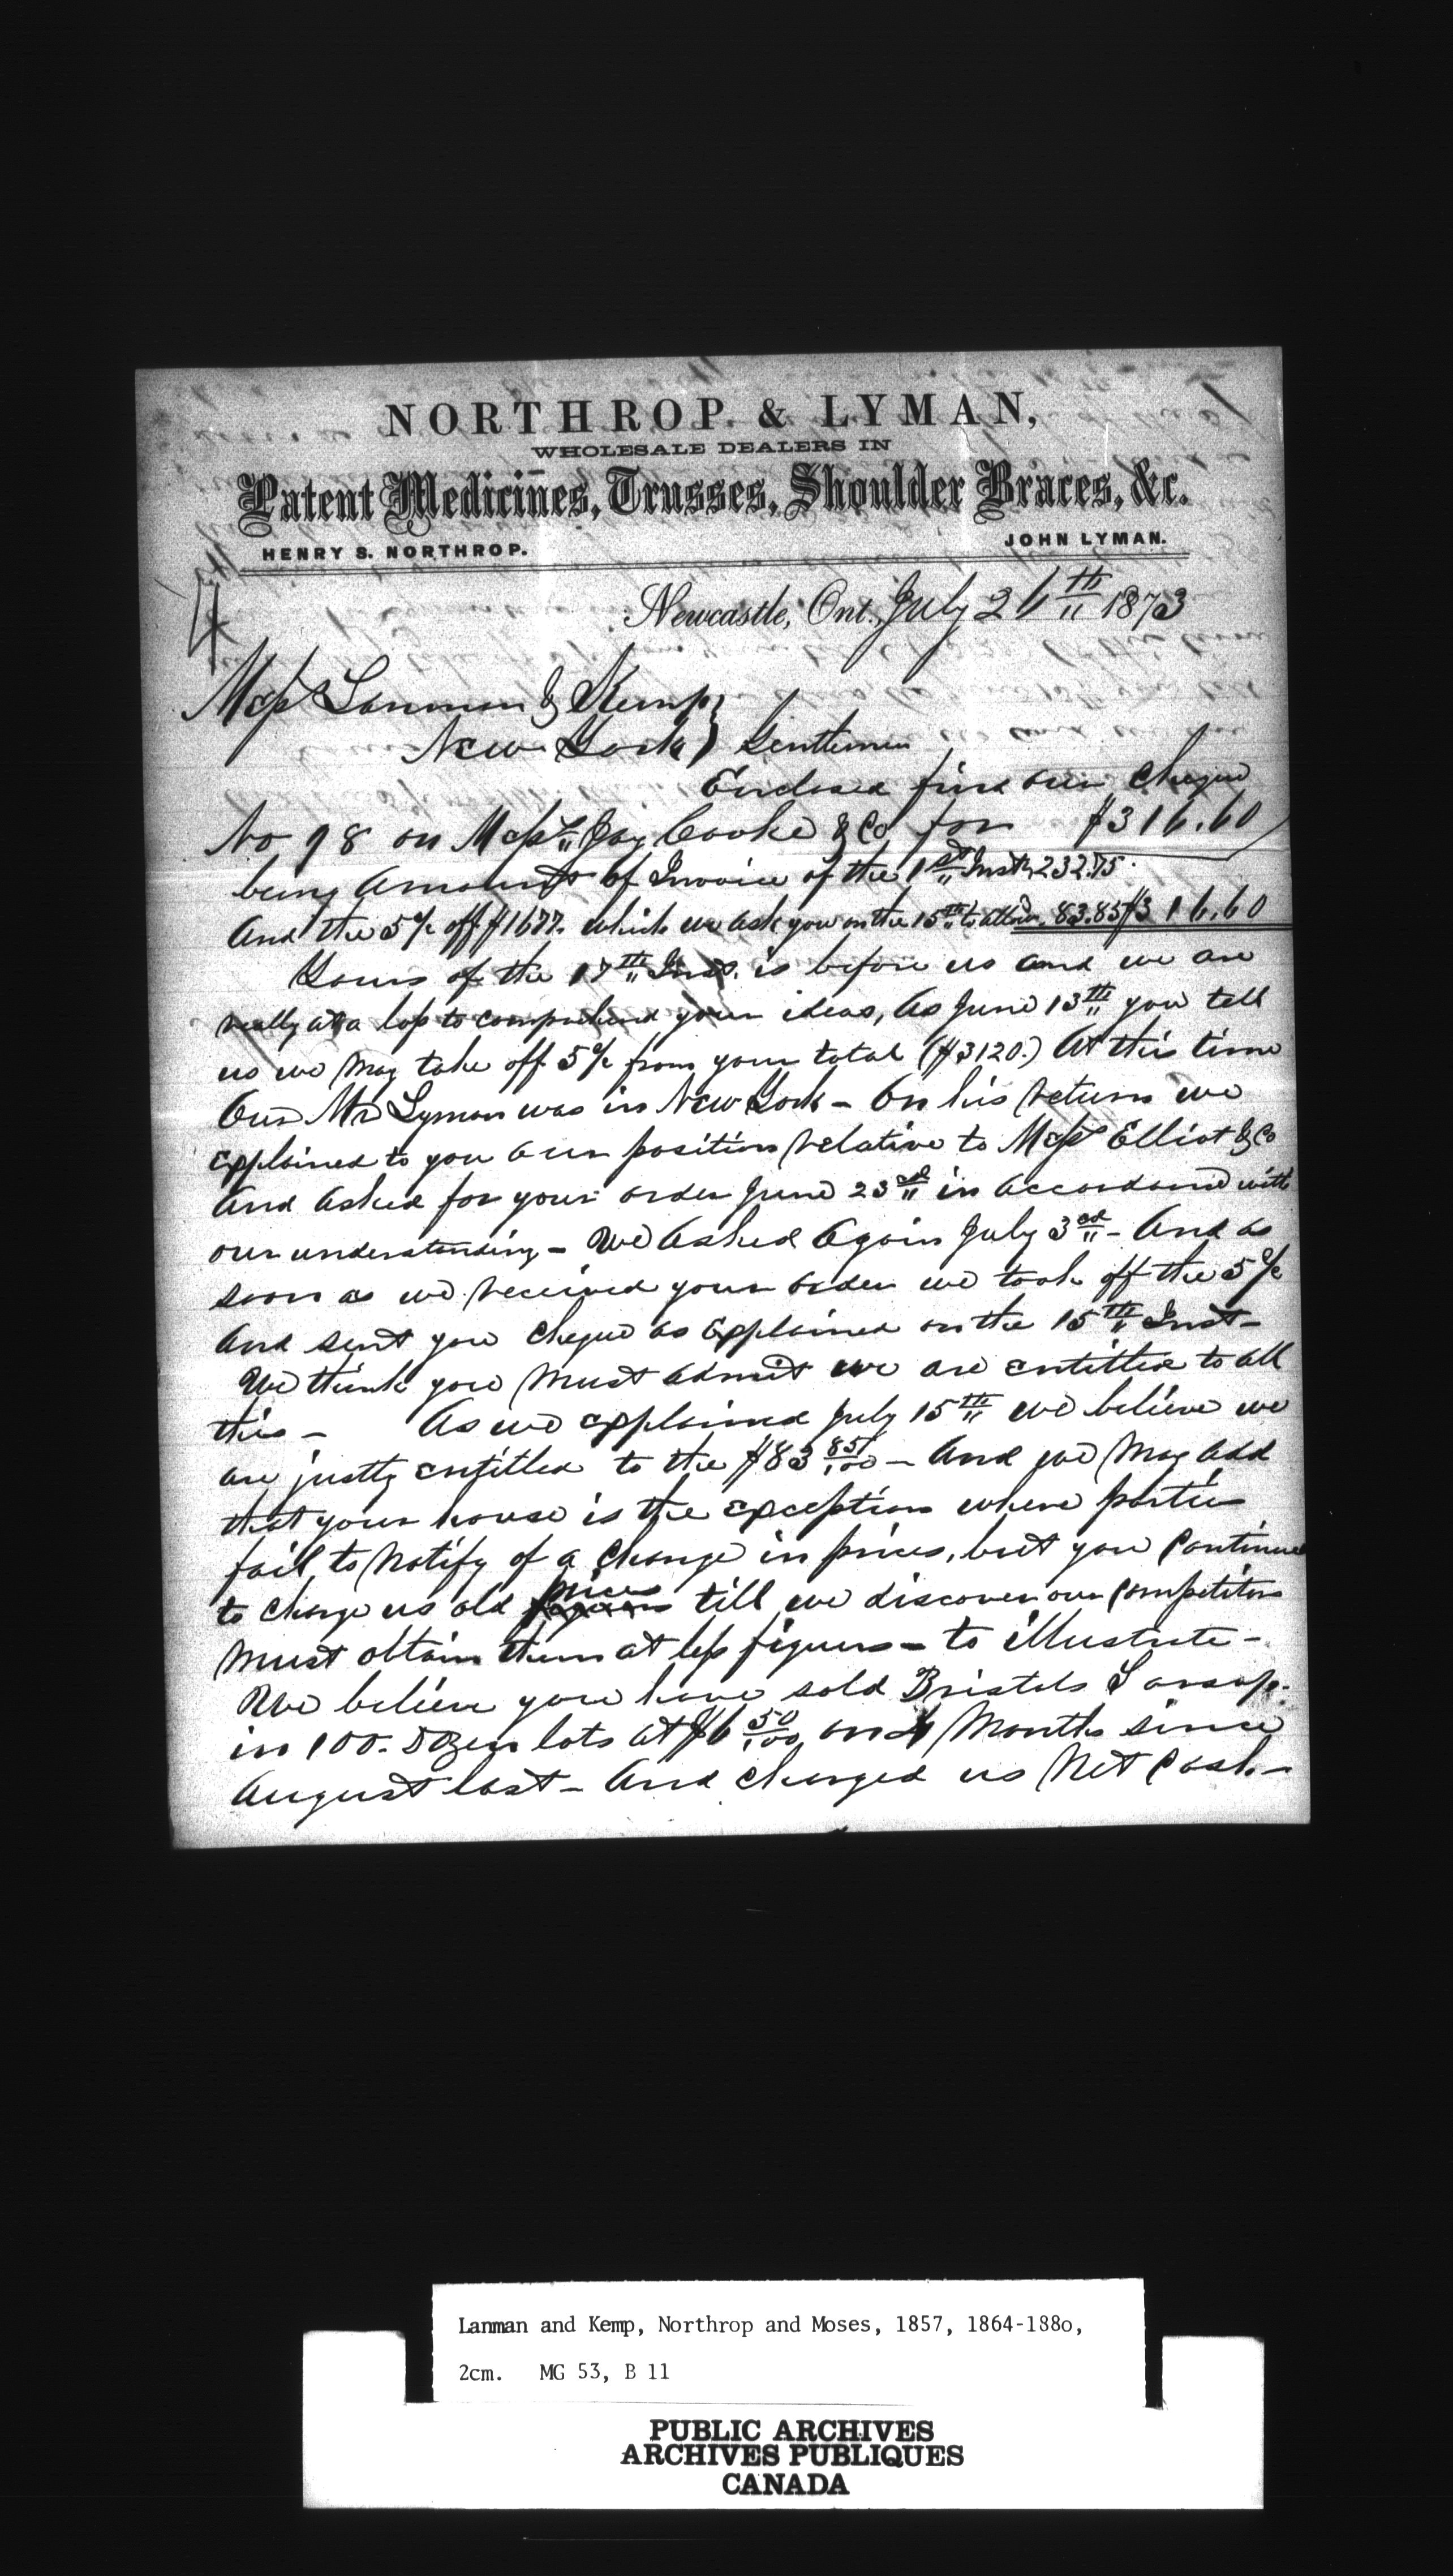 NORTHROP & LYMAN,
WHOLESALE DEALERS IN
Patent Medicines, Trusses, Shoulder Braces, &c.
HENRY S. NORTHROP. JOHN LYMAN.
Newcastle, Ont. July 26th 1873
Messrs Lanman & Kemp
New York Gentlemen
Enclosed find our Cheque
No 98 on Messrs Jay Cooke & Co for $316.60
being Amount of Invoice of the 1st Inst 232.75
And the 5% off $1677. which we ask you on the 15th to allow 83.85 $316.60
Yours of the 17th Inst. is before us and we are
really at a loss to comprehend your ideas, As June 13th you tell
us we May take off 5% from your total ($3120.) At this time
Our Mr Lyman was in New York - On his return we
explained to you our position relative to Messrs Elliot & Co
And Asked for your order June 23rd in accordance with
our understanding - We Asked Again July 3rd - And as
soon as we received your order we took off the 5%
And sent you Cheque as Explained on the 15th Inst -
We think you Must Admit we are entitled to all
this - As we explained July 15th we believe we
are justly entitled to the $83 85/100 - And we May Add
that your house is the exception where parties
fail to Notify of a Change in prices, but you Continue
to Charge us old prices till we discover our Competitors
Must obtain them at less figures - to illustrate -
We believe you have sold Bristols Sarsap.
in 100. Dozen lots at $6 50/100 on 4 Months since
August last - And charged us Net Cash -
Lanman and Kemp, Northrop and Moses, 1857, 1864-188o,
2cm. MG 53, B 11
PUBLIC ARCHIVES
ARCHIVES PUBLIQUES
CANADA